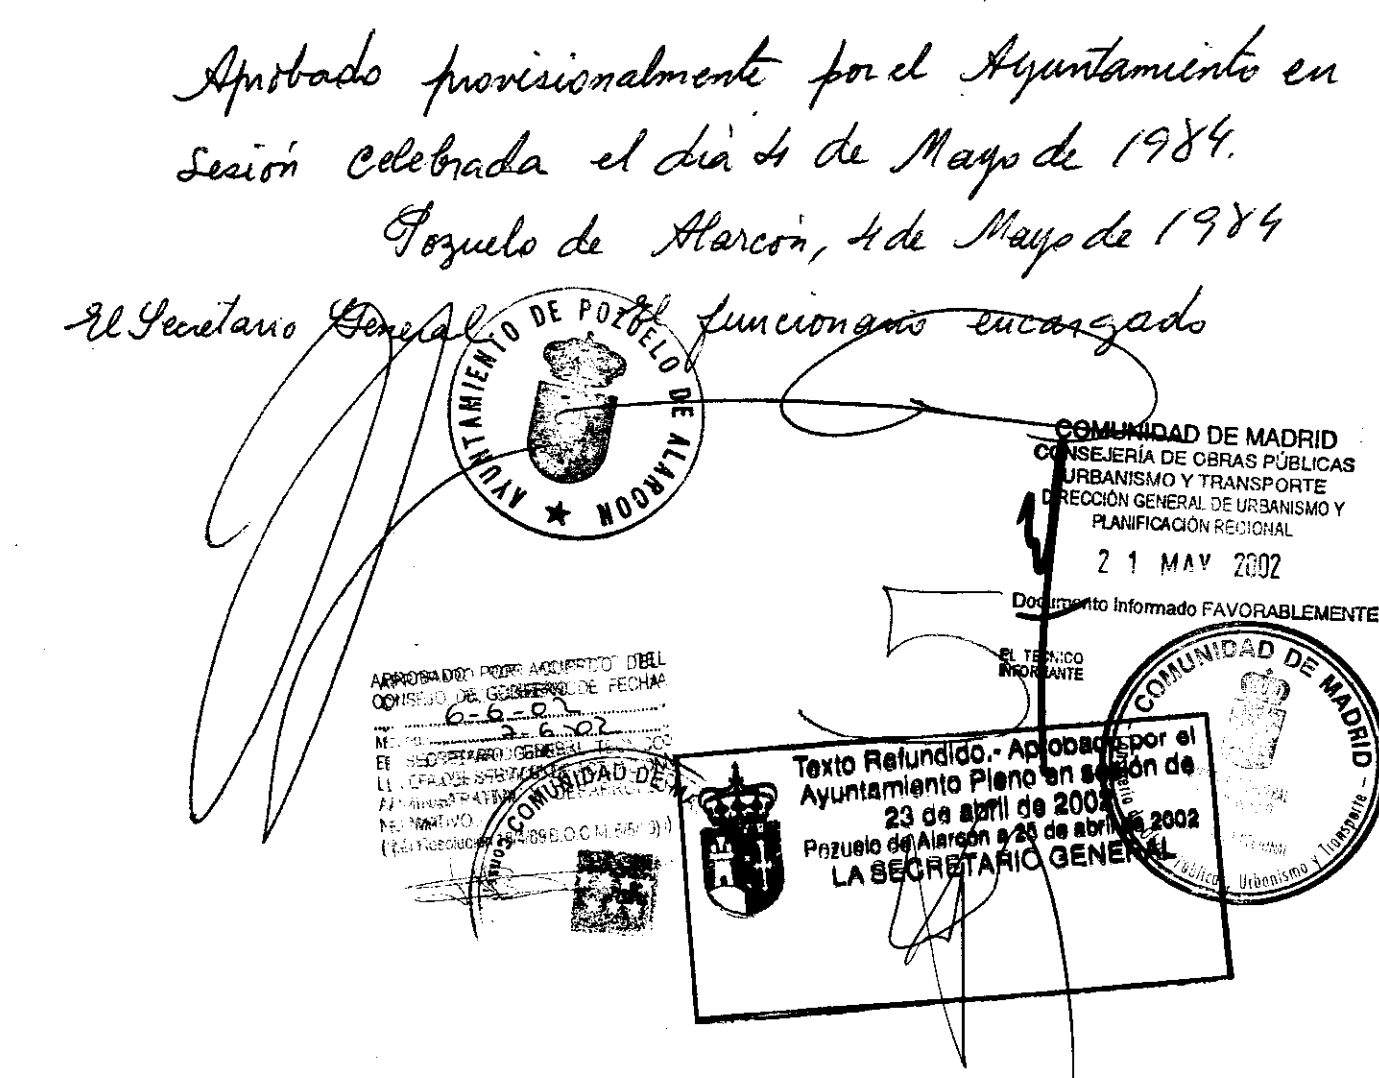 Aprobado provisionalmente por el Ayuntamiento en
sesión celebrada el día 4 de Mayo de 1984.
Pozuelo de Alarcón, 4 de Mayo de 1984
El Secretario General El funcionario encargado
AYUNTAMIENTO DE POZUELO DE ALARCON
COMUNIDAD DE MADRID
CONSEJERÍA DE OBRAS PÚBLICAS
URBANISMO Y TRANSPORTE
DIRECCIÓN GENERAL DE URBANISMO Y
PLANIFICACIÓN REGIONAL
21 MAY 2002
Documento informado FAVORABLEMENTE
EL TECNICO
INFORMANTE
COMUNIDAD DE MADRID
Urbanismo y Transporte
APROBADO POR ACUERDO DEL
CONSEJO DE GOBIERNO DE FECHA
6-6-02
7-6-02
EL SECRETARIO GENERAL
COMUNIDAD DE
Texto Refundido.- Aprobado por el
Ayuntamiento Pleno en sesión de
23 de abril de 2002
Pozuelo de Alarcón a 25 de abril de 2002
LA SECRETARIO GENERAL